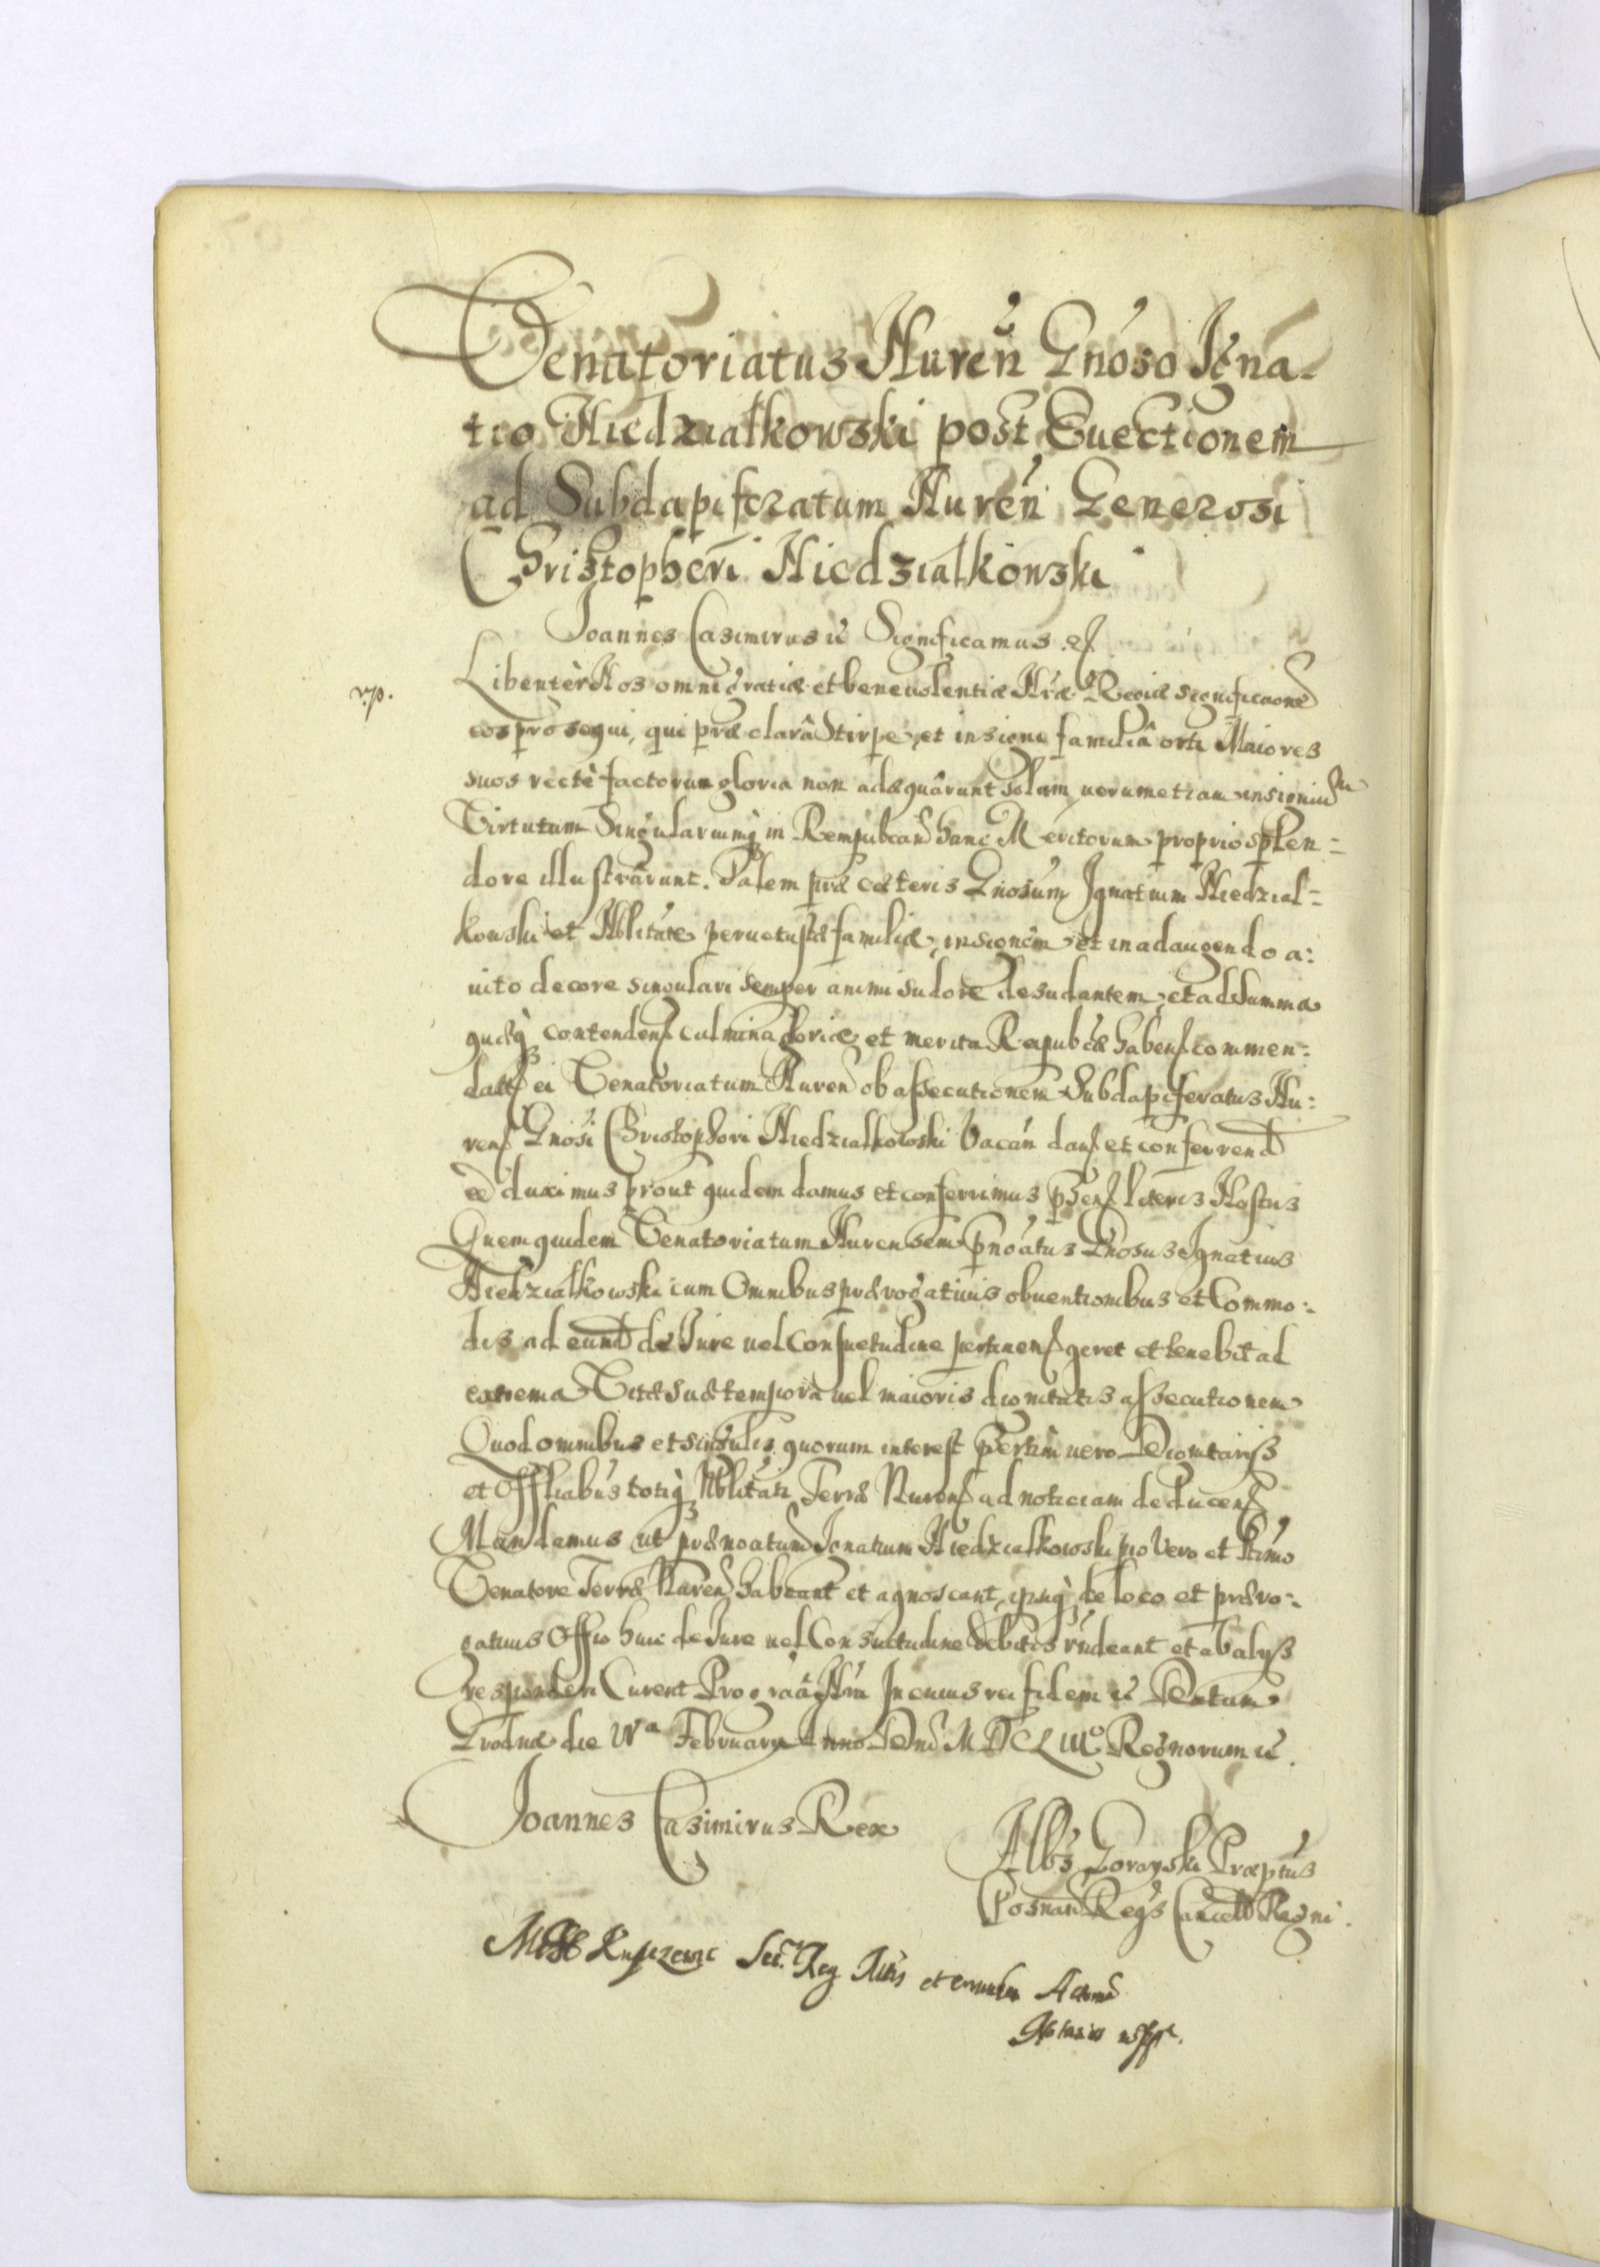 Venatoriatus Nuren Gnoso Igna-
tio Niedzialkowski post Euectionem
ad Subdapiferatum Nuren Generosi
Christopheri Niedzialkowski
Joannes Casimirus etc Significamus etc
Libenter Nos omni gratiæ et beneuolentiæ Nræ Regiæ significaone
eos prosequi, qui præclarâ Stirpe, et insigni familiâ orti Maiores
suos rectè factorum gloria non adæquârunt solum, uerumetiam insignium
Virtutum Singulariumq in Rempubcam hanc Meritorum proprio splen=
dore illustrârunt. Talem præ cæteris Gnosum Ignatium Niedzial=
kowski et Nblitate peruetustæ familiæ, insignem et in adaugendo a:
uito decore singulari semper animi sudore desudantem, et ad Summa
quæq contenden culmina gloriæ et merita Reipubcæ haben commen:
datt ei Venatoriatum Nuren ob assecutionem Subdapiferatus Nu:
ren Gnosi Christophori Niedzialkowski Vacan dan et conferrend
ee duximus prout quidem damus et conferrimus pnsen literis Nostris
Quem quidem Venatoriatum Nurensem pnoatus Gnosus Ignatius
Niedzialkowski cum Omnibus prærogatiuis obuentionibus et Commo:
dis ad eund de Iure uel Consuetudine pertinen geret et tenebit ad
extrema Vitæ suæ tempora uel maioris dignitatis assecutionem
Quod omnibus et singulis quorum interest psertim uero Dignitariis
et Offliabus totiq Nblitati Terræ Nuren ad noticiam deducen
Mandamus ut prænoatum Ignatium Niedzialkowski pro Vero et Ltimo
Venatore Terræ Nuren habeant et agnoscant, eiq de loco et præro:
gatiuis Offio huic de Iure uel Consuetudine debitis rndeant et ab alijs
responderi Curent Pro graâ Nra In cuius rei fidem etc Datum
Grodnæ die VIa February Anno Dni MDCLIIIo Regnorum etc.
Joannes Casimirus Rex
Albs Gorayski Præptus
Posnan Regs Cancell Regni.
Sec. Reg Mtis et Actor
mpp.